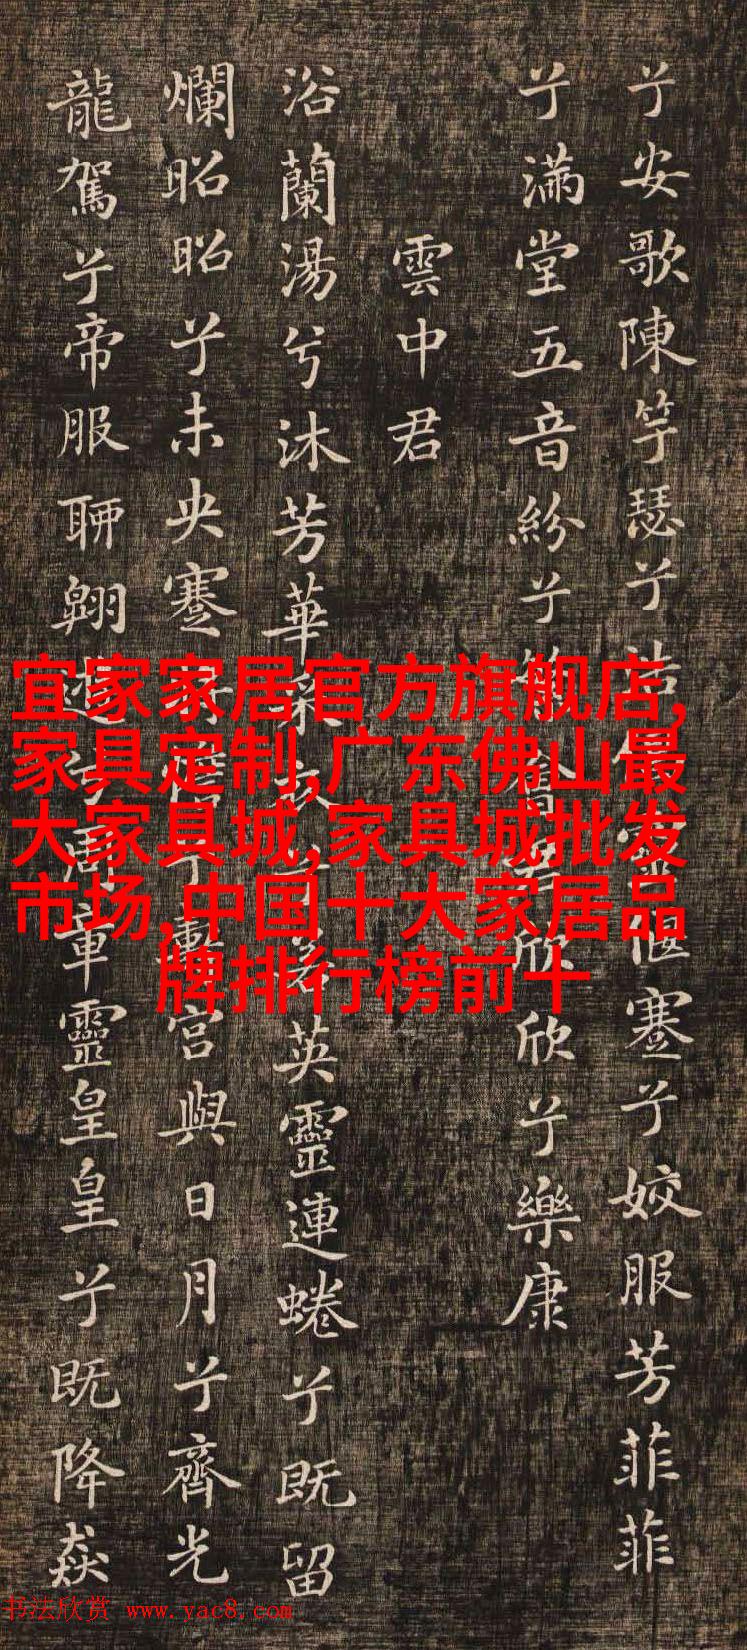 兮安歌陳竽瑟兮浩倡靈偃蹇兮姣服芳菲菲
兮滿堂五音紛兮繁會君欣欣兮樂康
雲中君
浴蘭湯兮沐芳華采衣兮若英靈連蜷兮既留
爛昭昭兮未央蹇將憺兮壽宮與日月兮齊光
龍駕兮帝服聊翱遊兮周章靈皇皇兮既降猋
宜家家居官方旗舰店,
家具定制,广东佛山最
大家具城,家具城批发
市场,中国十大家居品
牌排行榜前十
书法欣赏 www.yac8.com